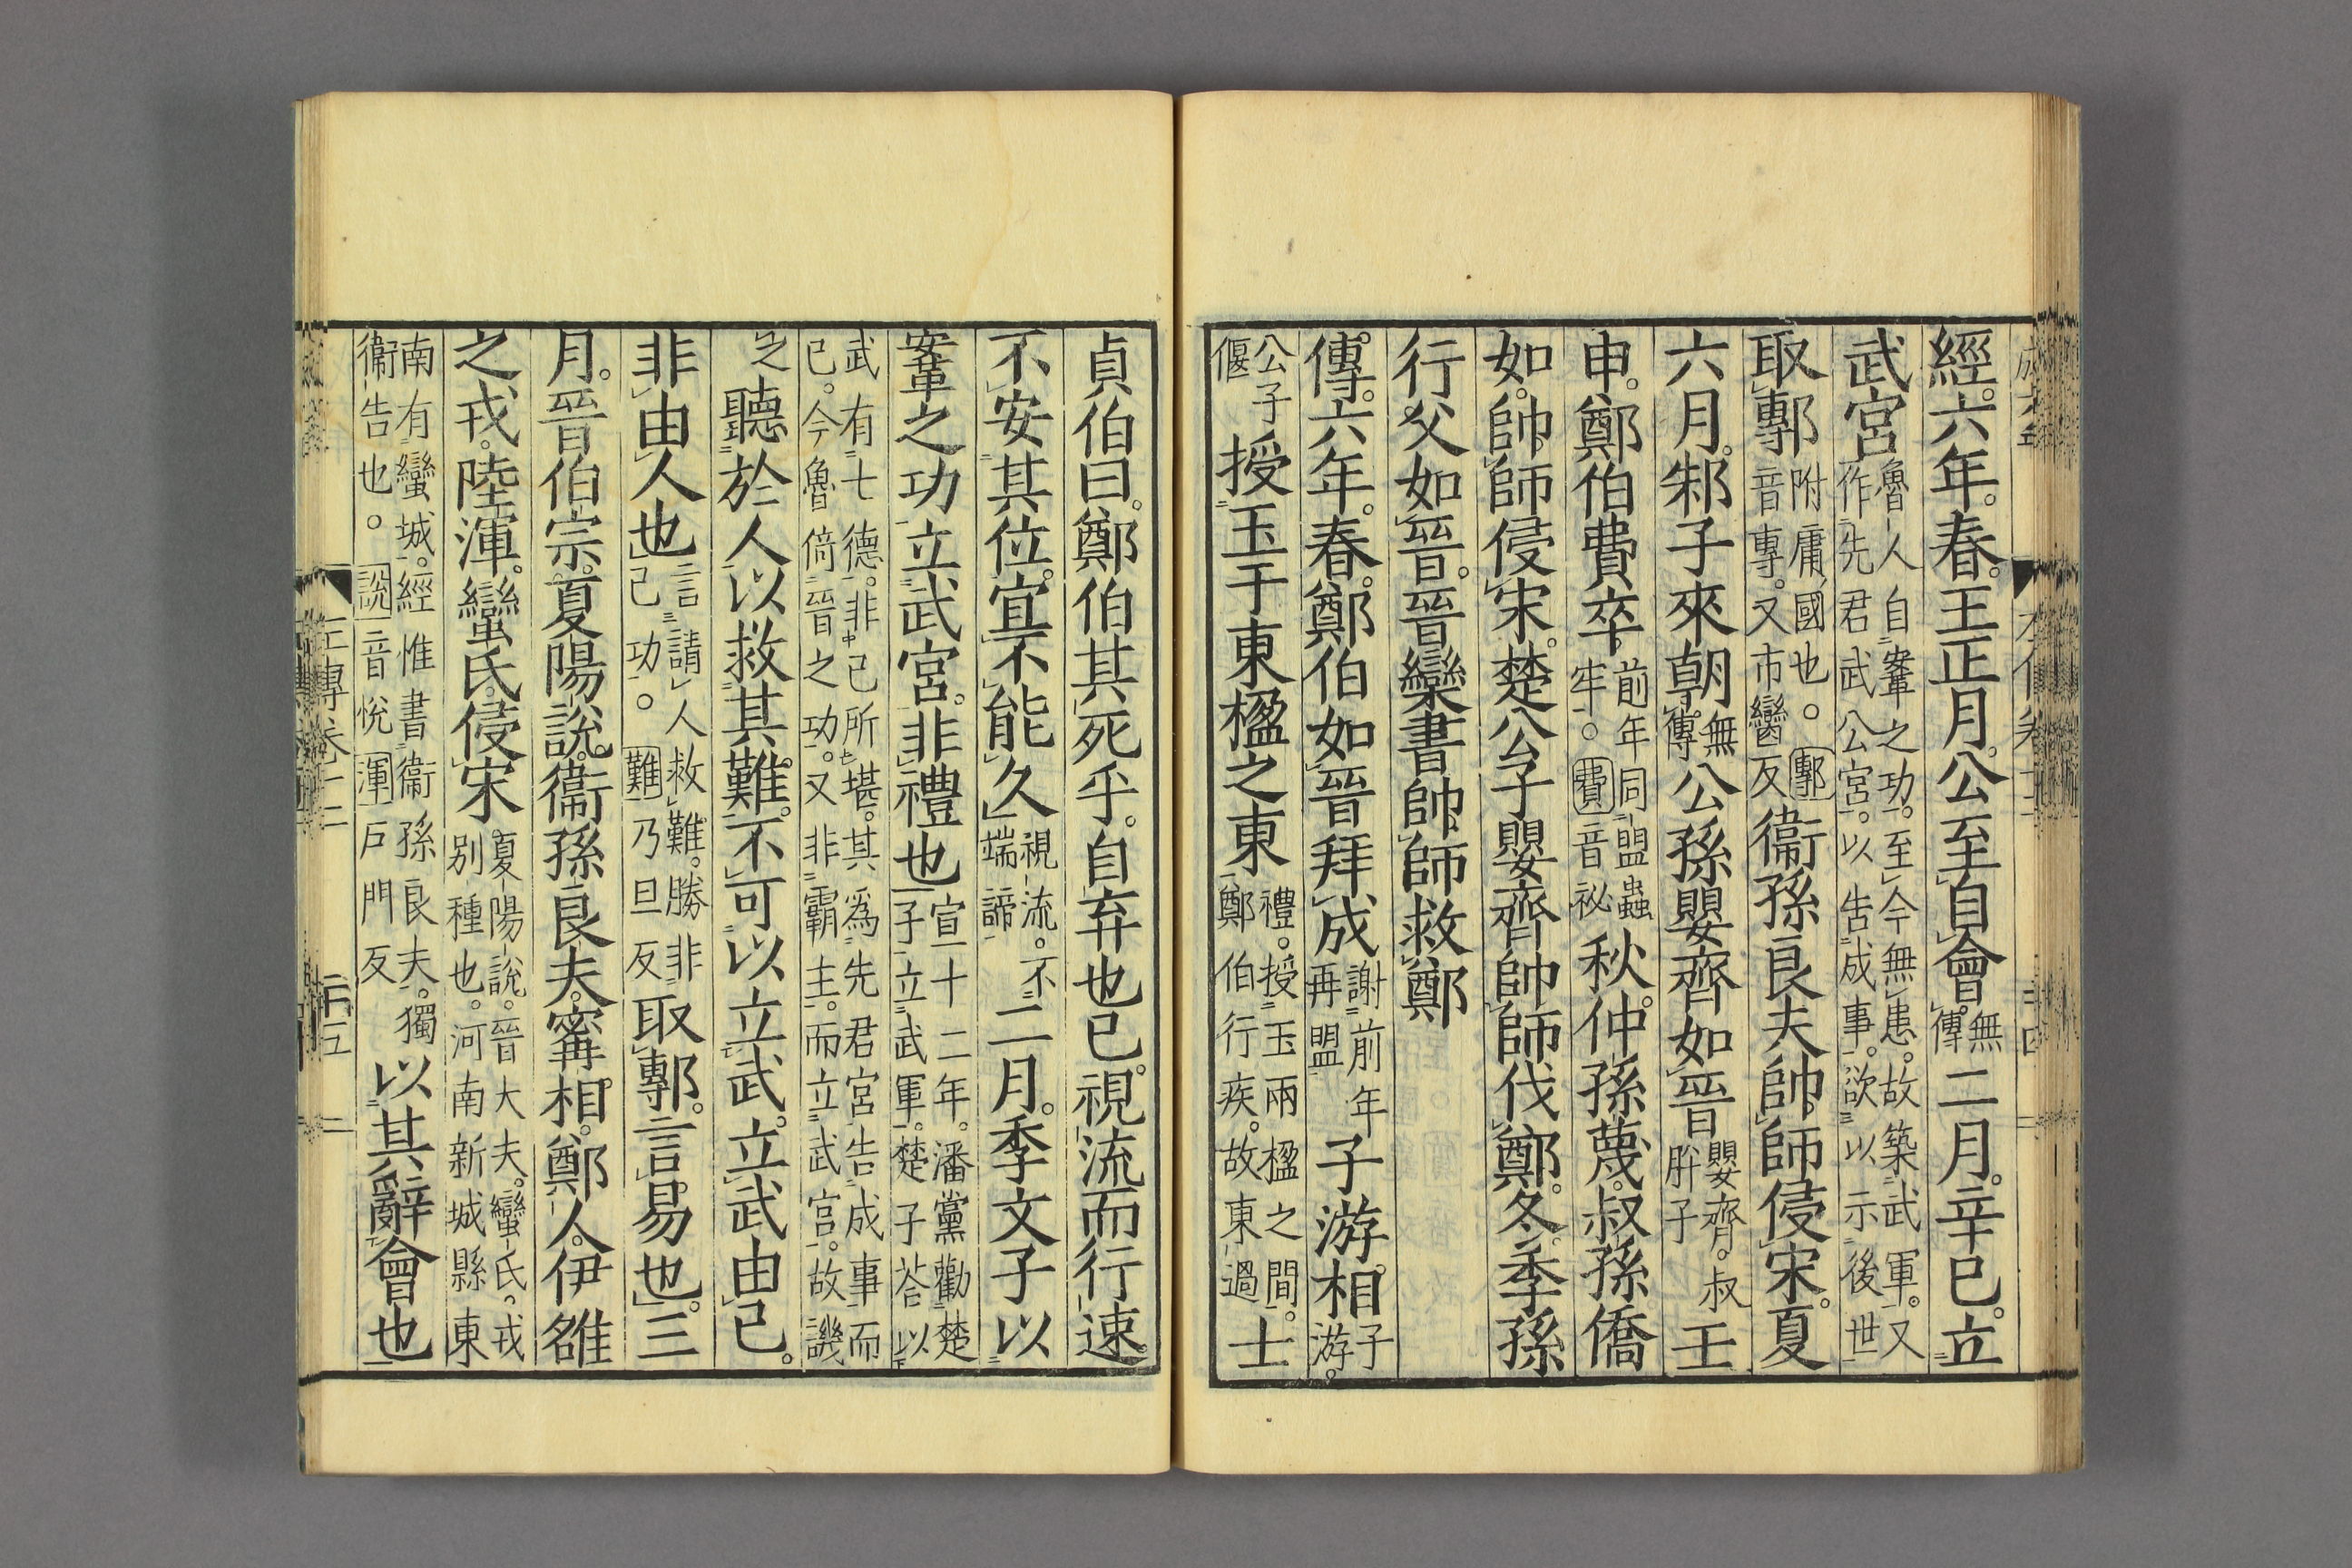 經。六年。春。王正月。公至自會。無傳二月。辛巳。立
武宮魯人自鞌之功。至今無患。故築武軍。又作先君武公宮。以告成事。欲以示後世
取鄟附庸國也。鄟音專。又市臠反衞孫良夫帥師侵宋。夏
六月。邾子來朝。無傳公孫嬰齊如晉嬰齊。叔肸子壬
申。鄭伯費卒。前年同盟蟲牢。費音祕秋。仲孫蔑。叔孫僑
如。帥師侵宋。楚公子嬰齊帥師伐鄭。冬。季孫
行父如晉。晉欒書帥師救鄭
傳。六年。春。鄭伯如晉拜成謝前年再盟子游。相子游。
公子偃授玉于東楹之東禮。授玉兩楹之間。鄭伯行疾。故東過士
貞伯曰。鄭伯其死乎。自弃也已。視流而行速。
不安其位。宜不能久視流。不端諦二月。季文子以
鞌之功立武宮。非禮也宣十二年。潘黨勸楚子立武軍。楚子荅以
武有七德。非己所堪。其爲先君宮告成事而已。今魯倚晉之功。又非霸主。而立武宮。故譏
之聽於人以救其難。不可以立武。立武由己。
非由人也言請人救難。勝非己功。難乃旦反取鄟。言易也。三
月。晉伯宗。夏陽說。衞孫良夫。甯相。鄭人。伊雒
之戎。陸渾。蠻氏侵宋夏陽說。晉大夫。蠻氏。戎别種也。河南新城縣東
南有蠻城。經惟書衞孫良夫。獨衞告也。說音悅渾戶門反以其辭會也
左傳卷十二
二十五